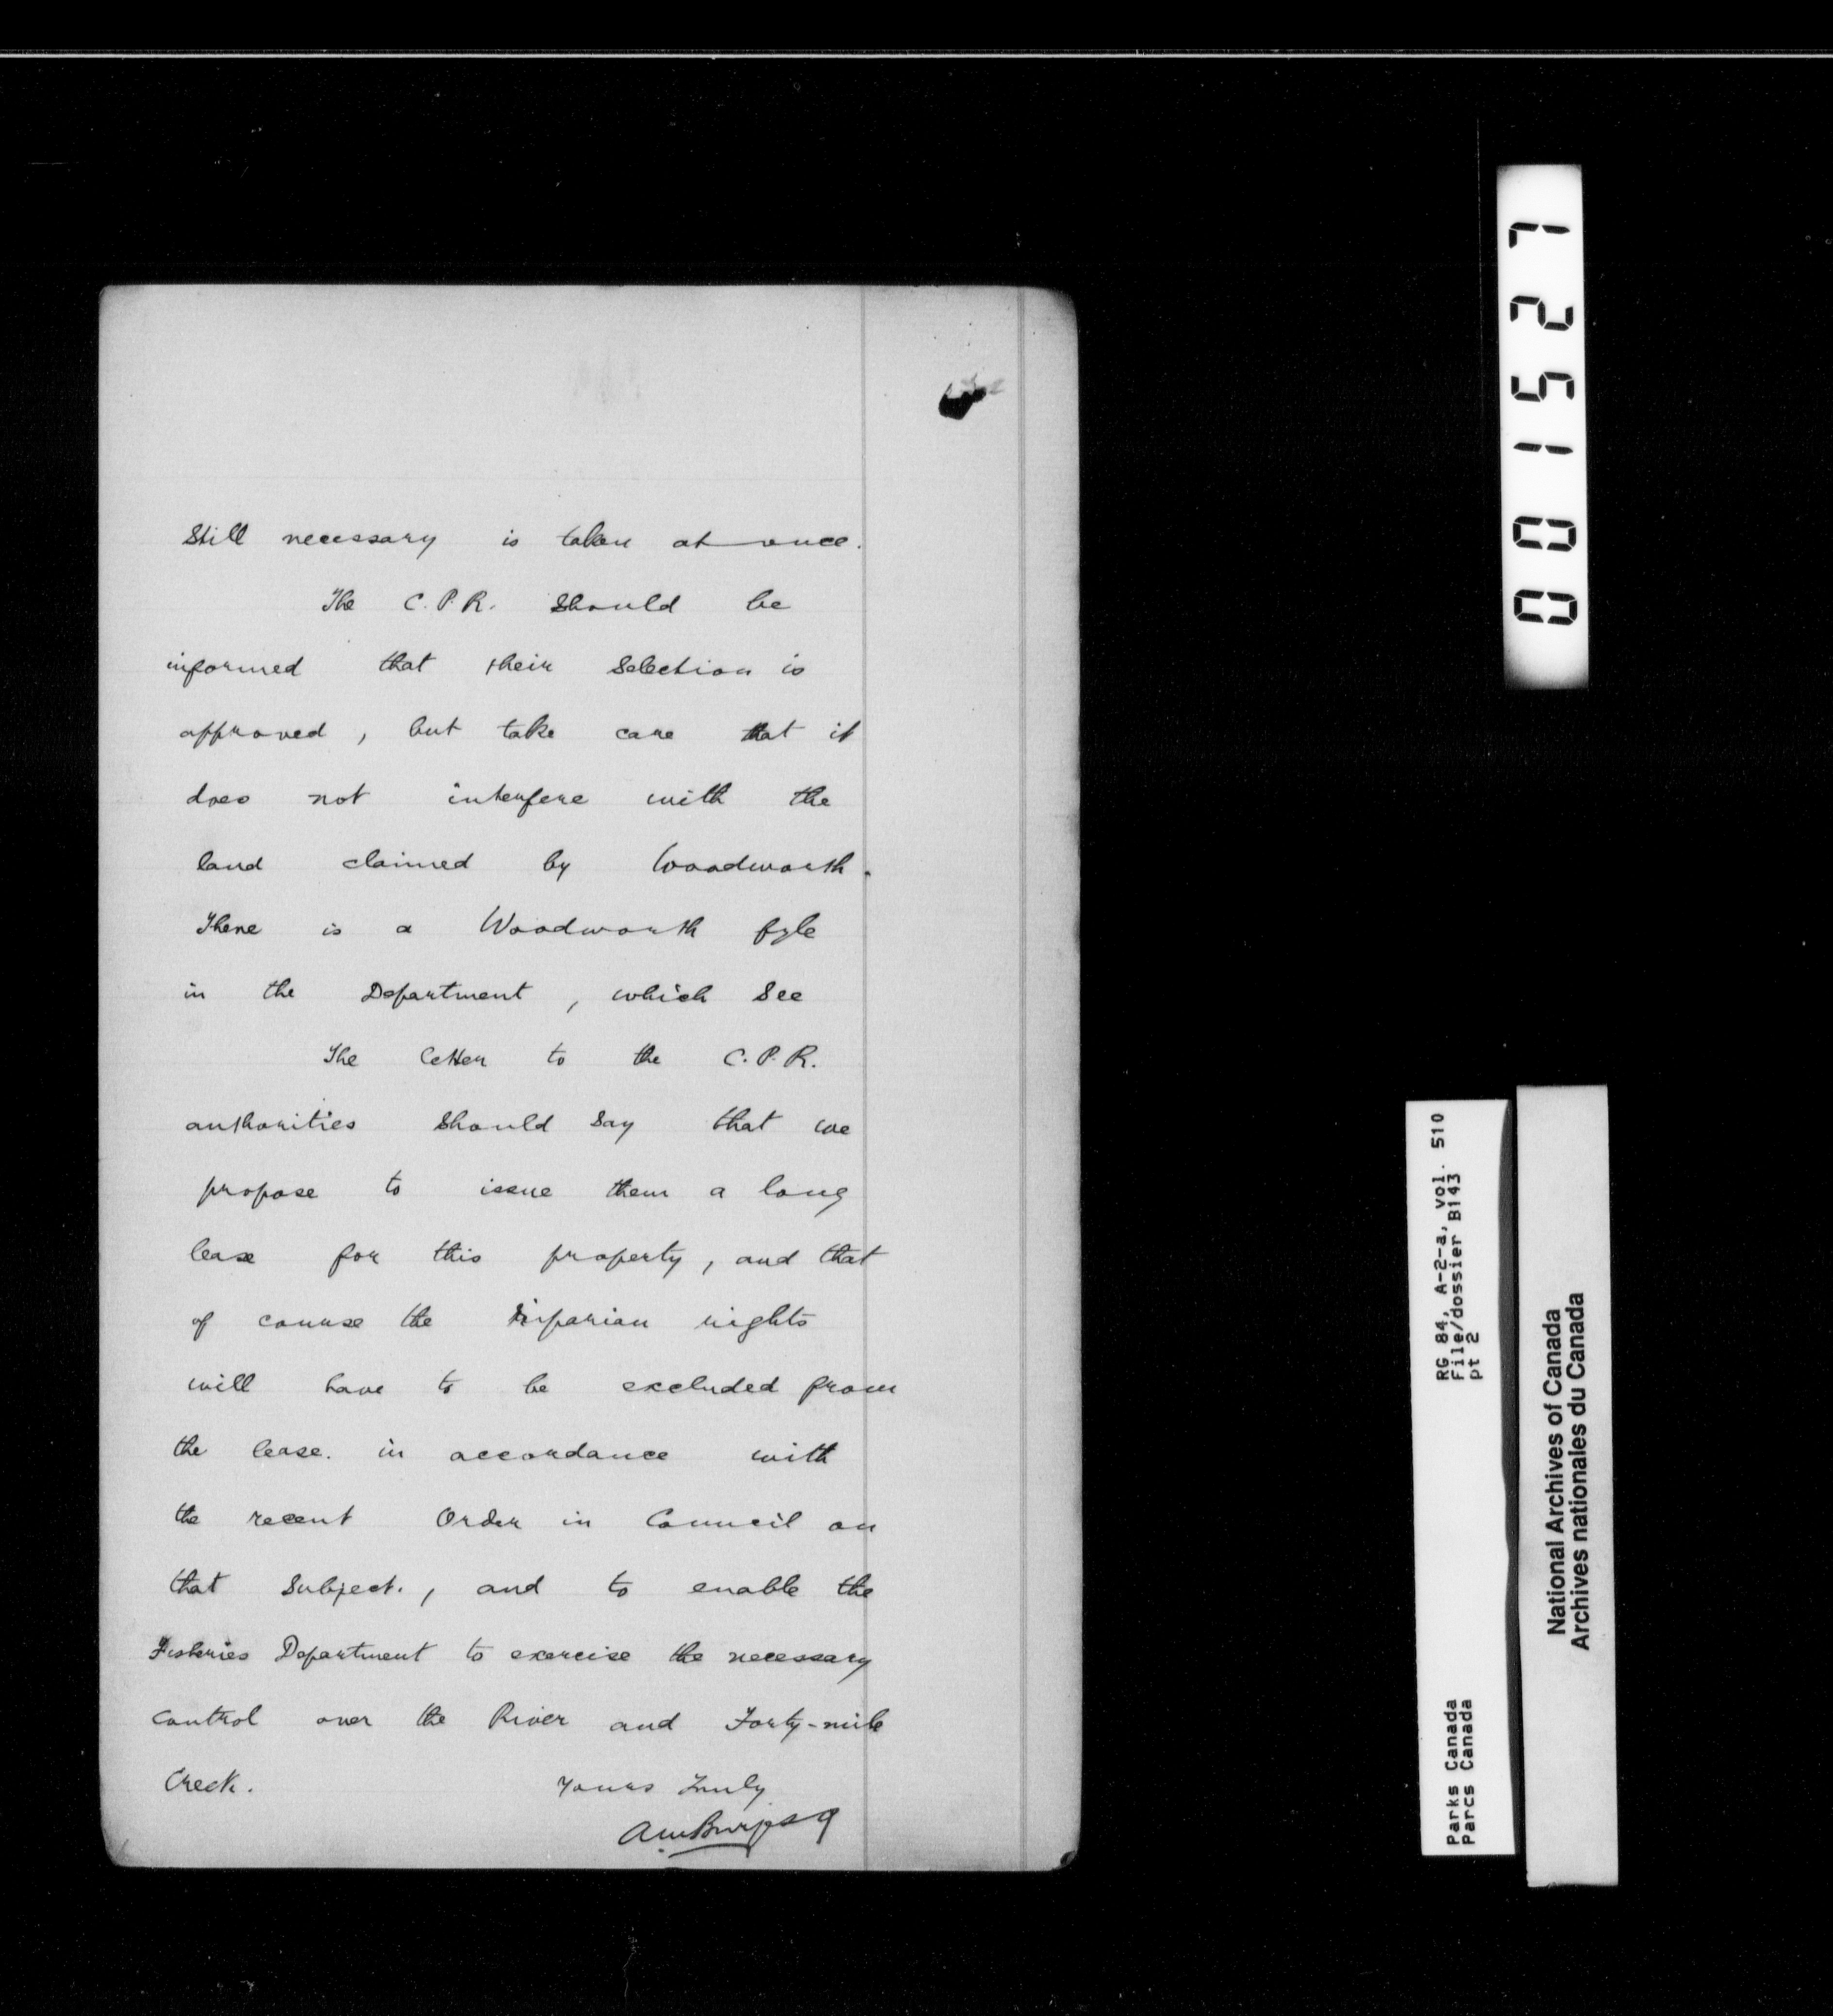 Still necessary is taken at once.
The C.P.R. should be
informed that their selection is
approved, but take care that it
does not interfere with the
land claimed by Woodworth.
There is a Woodworth fyle
in the Department, which see
The letter to the C.P.R.
authorities should say that we
propose to issue them a long
lease for this property, and that
of course the riparian rights
will have to be excluded from
the lease. in accordance with
the recent Order in Council on
that subject., and to enable the
Fisheries Department to exercise the necessary
control over the River and Forty-mile
Creek.
Yours Truly
001527
RG 84, A-2-a, vol. 510
File/dossier B143
pt 2
Parks Canada
Parcs Canada
National Archives of Canada
Archives nationales du Canada